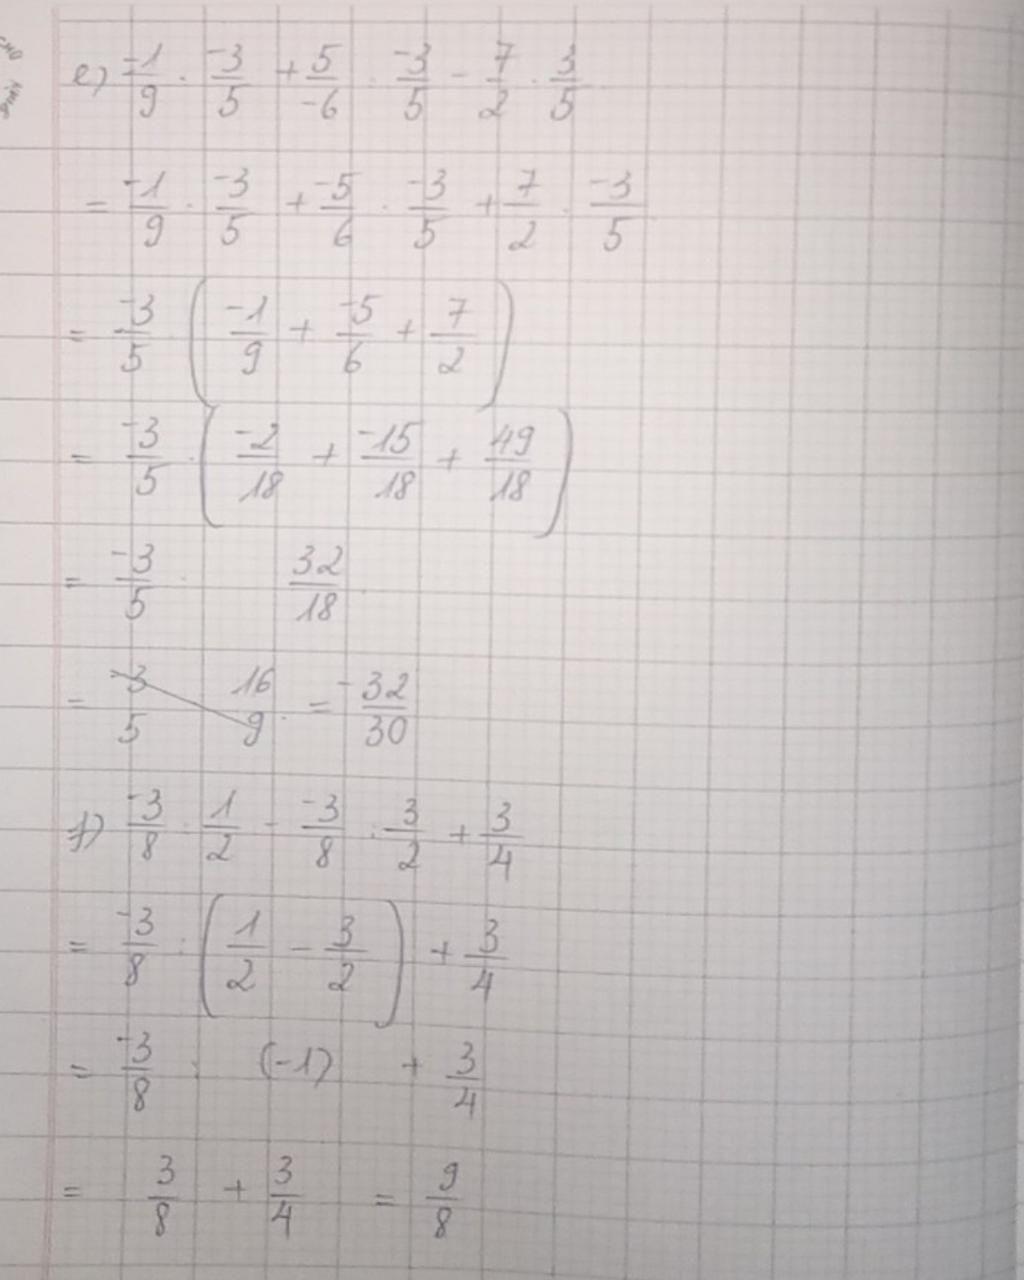 e) -1/9 · -3/5 + 5/-6 · -3/5 - 7/2 · 3/5
= -1/9 · -3/5 + -5/6 · -3/5 + 7/2 · -3/5
= -3/5 · ( -1/9 + -5/6 + 7/2 )
= -3/5 · ( -2/18 + -15/18 + 49/18 )
= -3/5 · 32/18
= -3/5 16/9 = -32/30
f) -3/8 · 1/2 - -3/8 · 3/2 + 3/4
= -3/8 · ( 1/2 - 3/2 ) + 3/4
= -3/8 · (-1) + 3/4
= 3/8 + 3/4 = 9/8